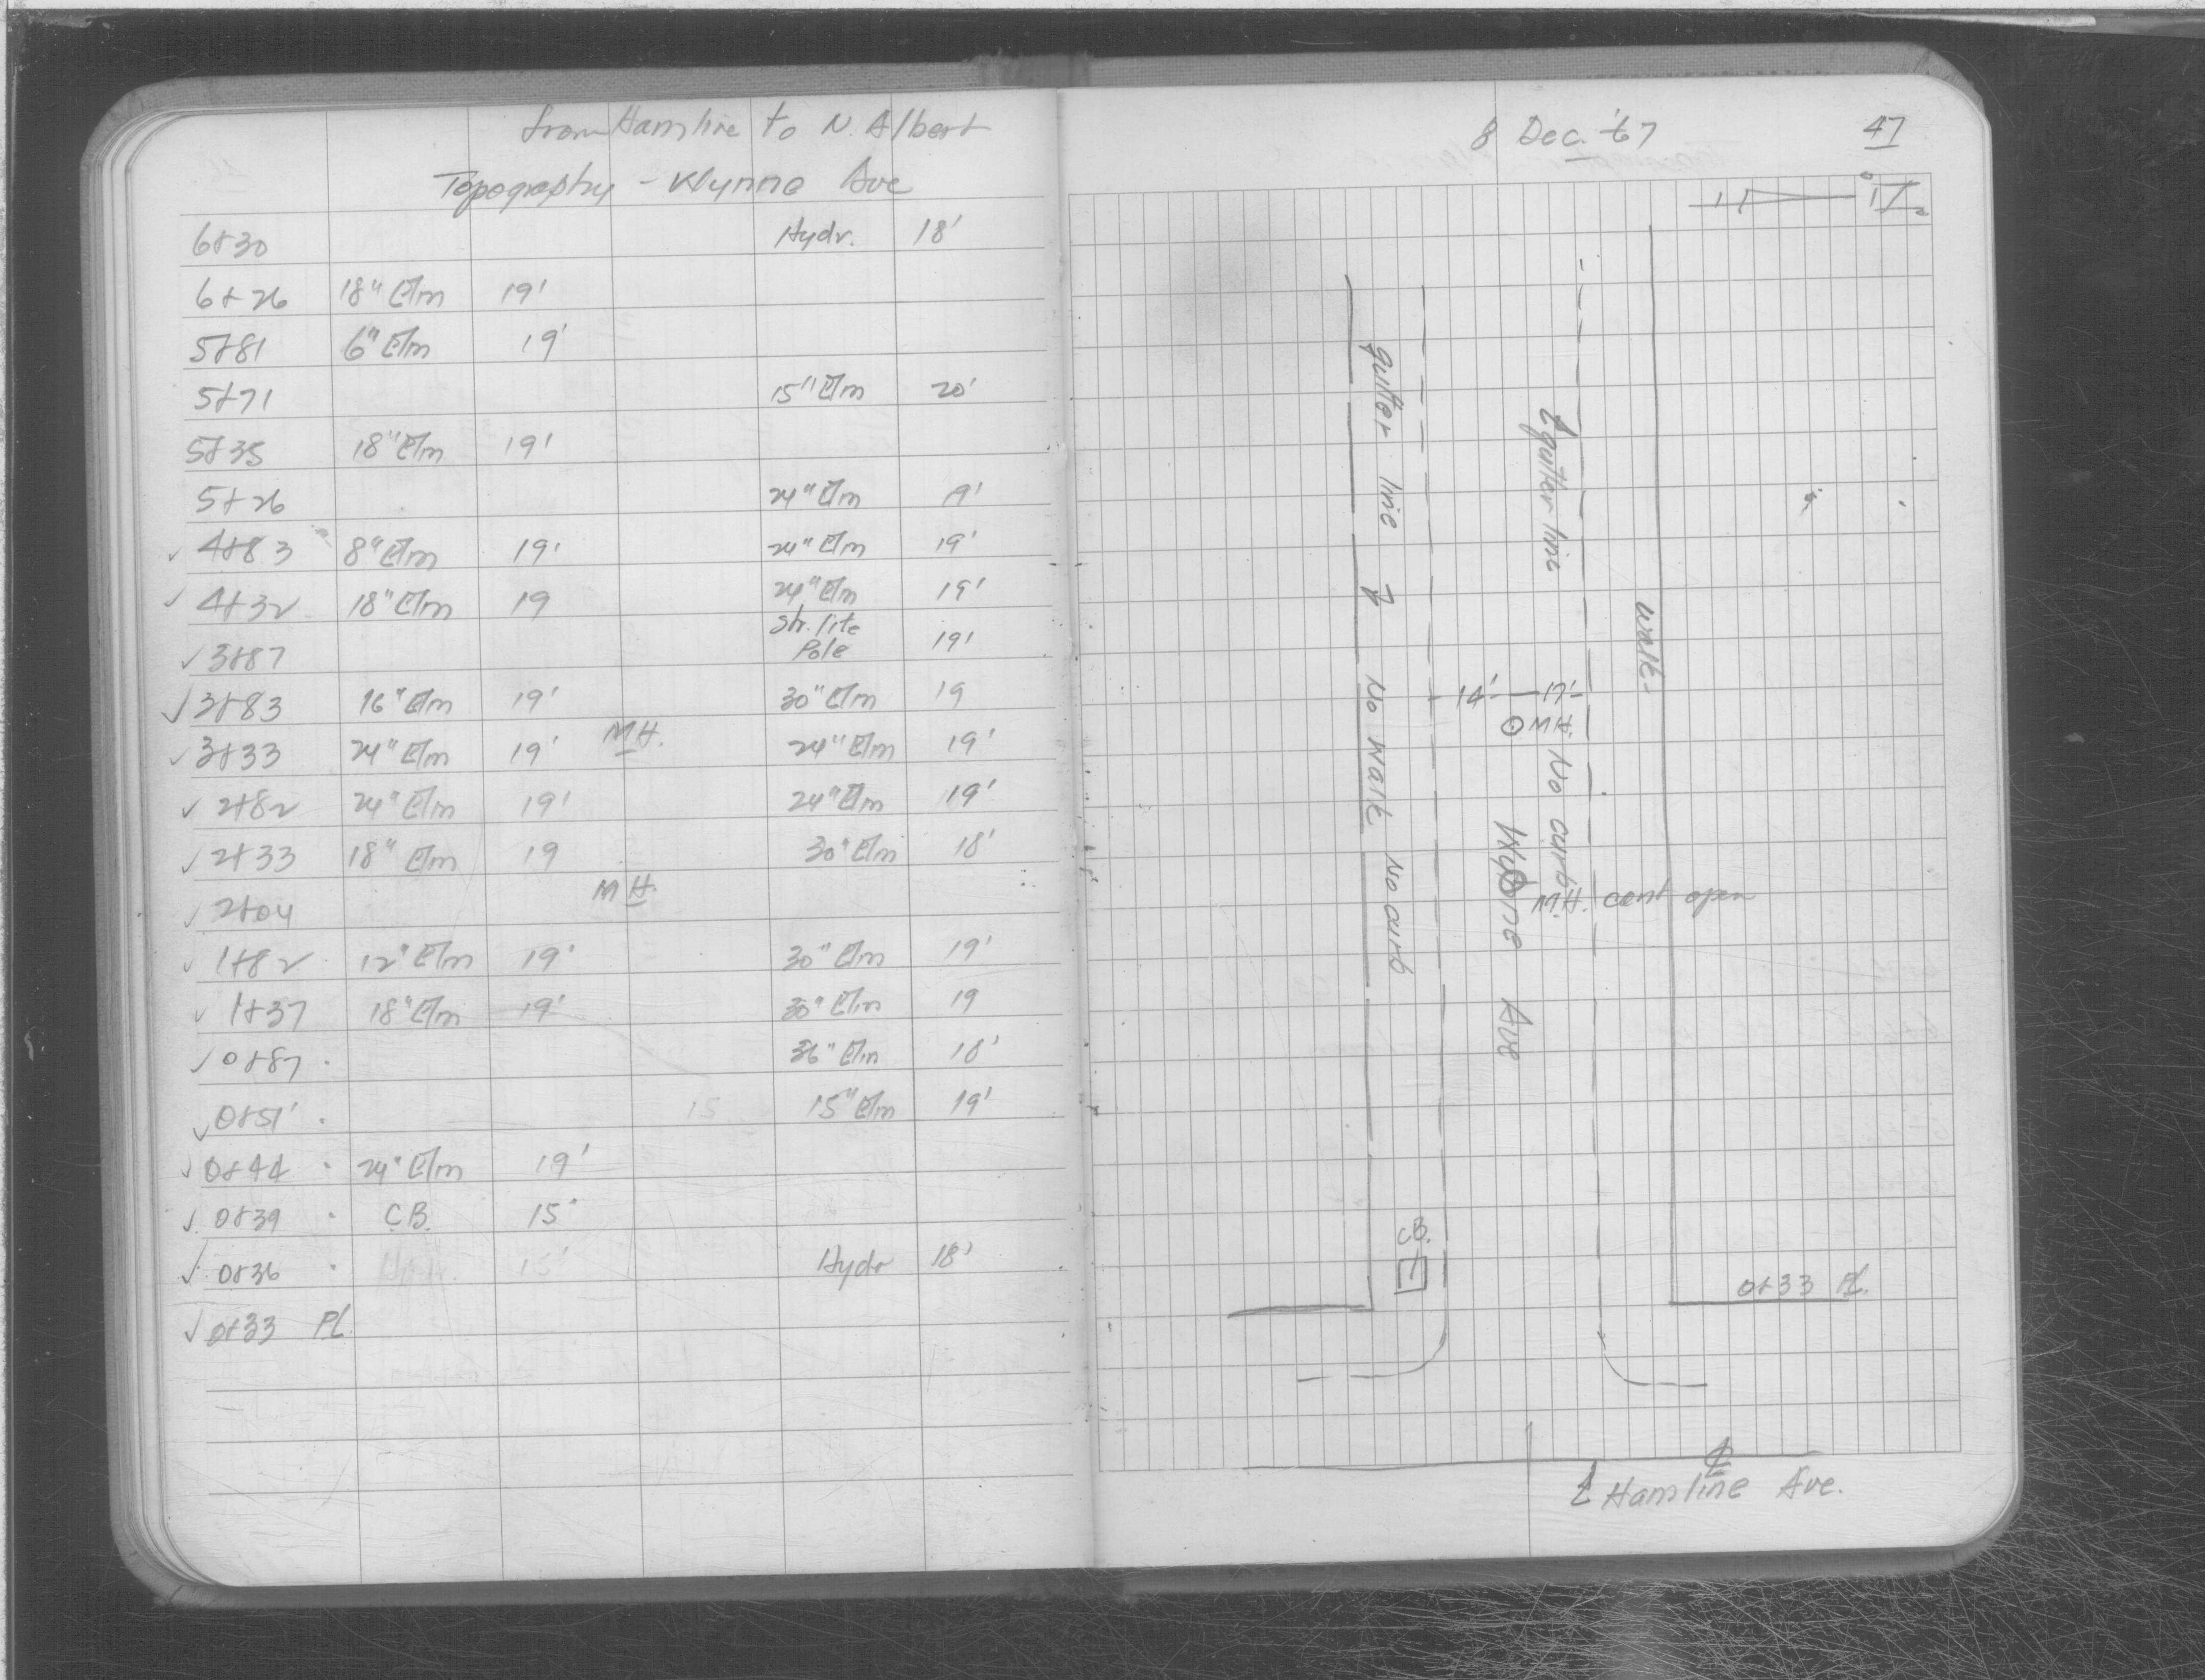 from Hamline to N. Albert
Topography - Wynne Ave
6+30 Hydr. 18'
6+26 18" Elm 19'
5+81 6" Elm 19'
5+71 15" Elm 20'
5+35 18" Elm 19'
5+26 24" Elm 19'
✓ 4+83 8" Elm 19' 24" Elm 19'
✓ 4+32 18" Elm 19 24" Elm 19'
✓ 3+87 Str. lite Pole 19'
✓ 3+83 16" Elm 19' 30" Elm 19
✓ 3+33 24" Elm 19' M.H. 24" Elm 19'
✓ 2+82 24" Elm 19' 24" Elm 19'
✓ 2+33 18" Elm 19 30" Elm 18'
✓ 2+04 M.H.
✓ 1+82 12" Elm 19' 30" Elm 19'
✓ 1+37 18" Elm 19' 30" Elm 19
✓ 0+87 36" Elm 18'
✓ 0+51' 15 15" Elm 19'
✓ 0+44 24" Elm 19'
✓ 0+39 C.B. 15'
✓ 0+36 15' Hydr 18'
✓ 0+33 PL.
8 Dec. '67 47
gutter line
No walk
No curb
gutter line
walk
14' 17'
M.H.
No curb
Wynne Ave
M.H. cant open
C.B.
0+33 PL.
℄ Hamline Ave.